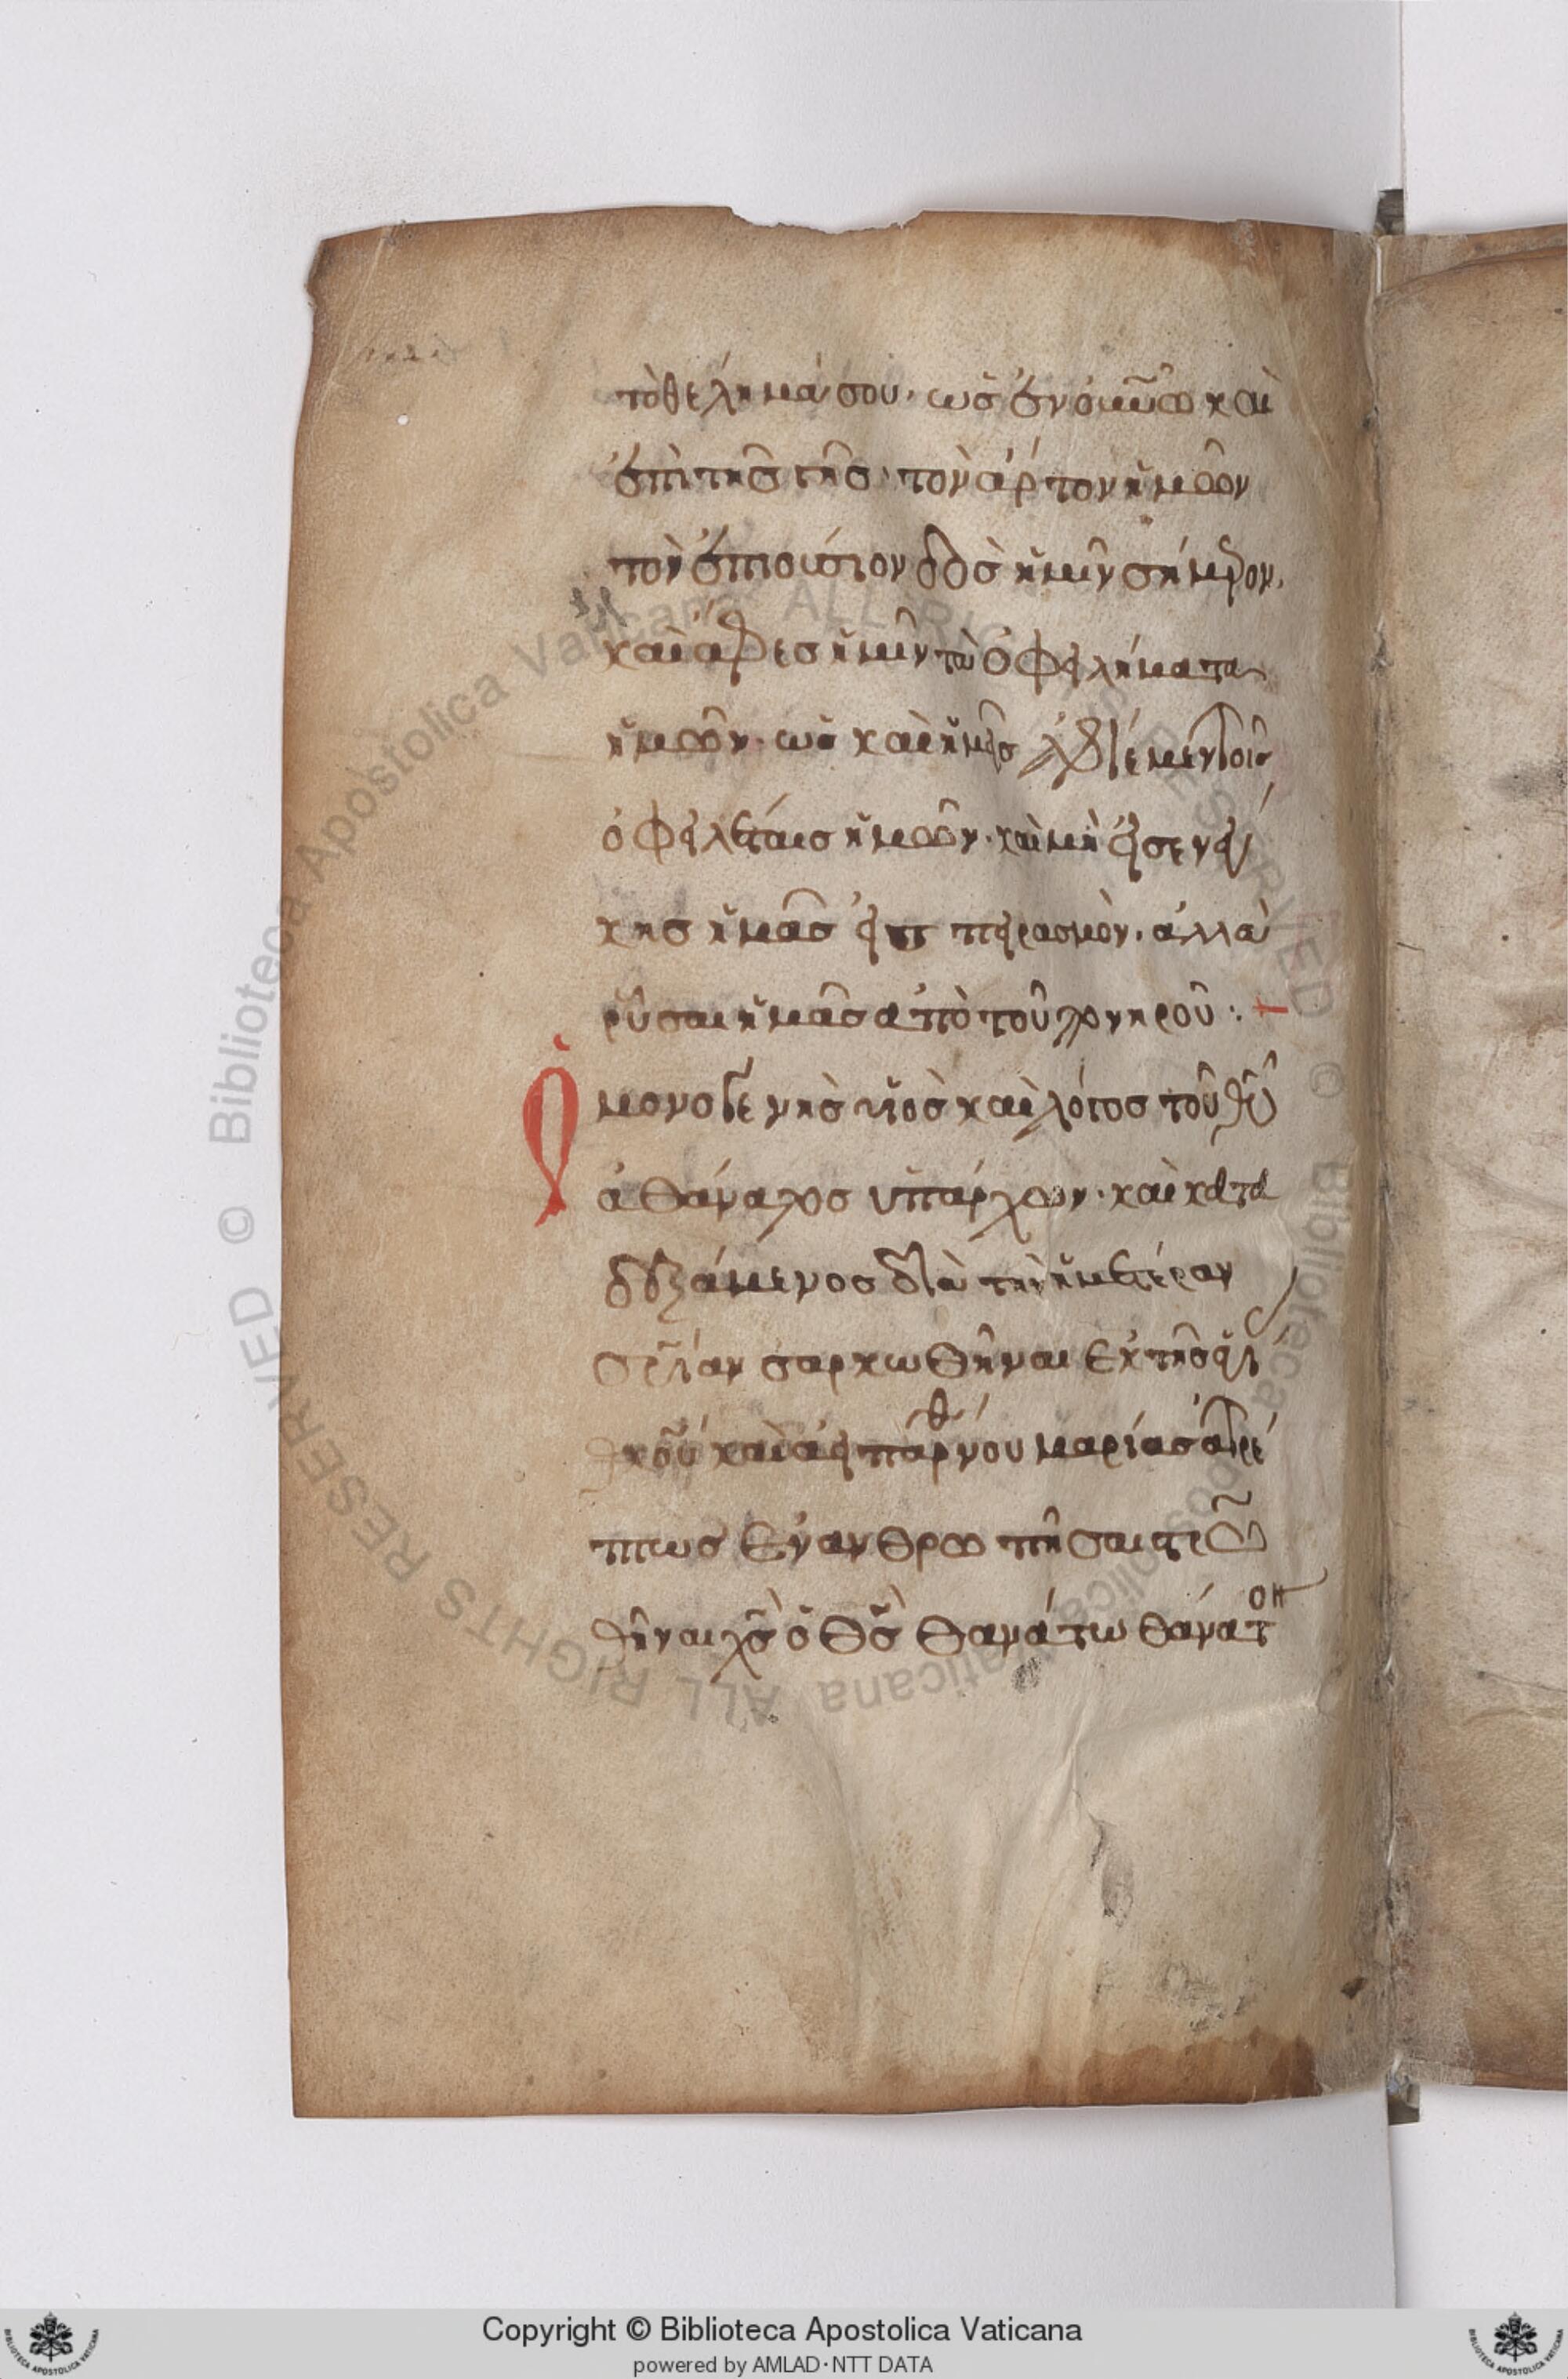 τὸ θέλημά σου· ὡς ἐν οὐνῶ καὶ
ἐπὶ τῆς γῆς· τὸν ἄρτον ἡμῶν
τὸν ἐπιούσιον δὸς ἡμῖν σήμερον·
καὶ ἄφες ἡμῖν τὰ ὀφειλήματα
ἡμῶν· ὡς καὶ ἡμεῖς ἀφίεμεν τοῖς
ὀφειλέταις ἡμῶν· καὶ μὴ εἰσενέγ
κης ἡμᾶς εἰς πειρασμὸν· ἀλλὰ
ῥῦσαι ἡμᾶς ἀπὸ τοῦ πονηροῦ :+
Ὁ μονογενὴς υἱὸς καὶ λόγος τοῦ θυ
ἀθάνατος ὑπάρχων· καὶ κατα
δεξάμενος διὰ τὴν ἡμετέραν
σρίαν σαρκωθῆναι ἐκ τῆς ἁγί
θκου καὶ ἀει παρθνου μαρίας ἀτρέ
πτως ἐνανθρωπήσας
θῆναι χς ὁ θς θανάτω θάνατον
Copyright © Biblioteca Apostolica Vaticana
powered by AMLAD·NTT DATA